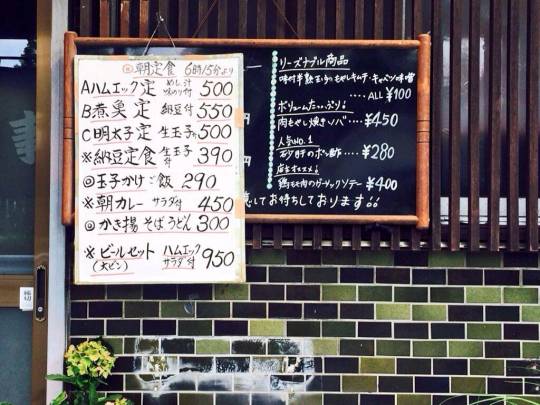 ◎朝定食 6時15分より
Aハムエッグ定 めし、汁 味のり付 500
B煮魚定 納豆付 550
C明太子定 生玉子付 500
※納豆定食 生玉子付 390
◎玉子かけご飯 290
※朝カレー サラダ付 450
◎かき揚そばうどん 300
※ビールセット(大ビン) ハムエッグ サラダ付 950
リーズナブル商品
味付半熟玉子・もやしキムチ・キャベツ味噌
‥‥ALL ¥100
ボリュームたっぷり!
肉もやし焼きソバ‥‥¥450
人気NO.1
砂肝のポン酢‥‥¥280
店主オススメ!
鶏もも肉のガーリックソテー ¥400
してお待ちしております!!